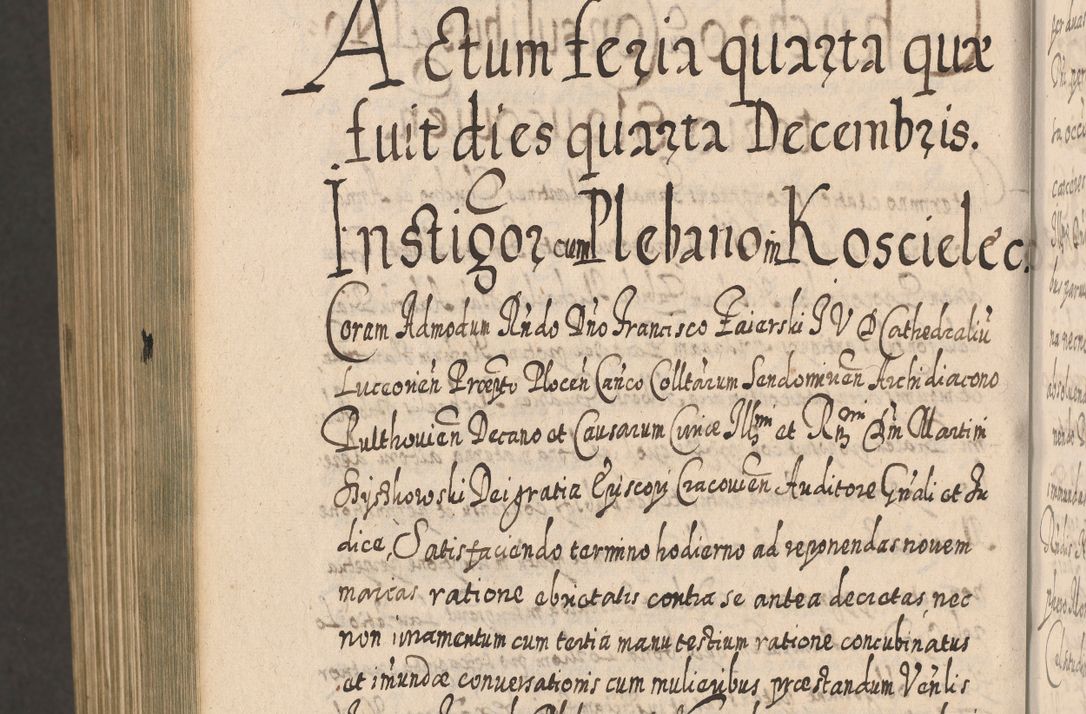 Actum feria quarta quæ
fuit dies quarta Decembris.
Instigor cum Plebano in Koscielec.
Coram Admodum Rñdo Dño Francisco Zaierski I V D Cathedraliũ
Luceorien Præpto Plocen Canco Colltarum Sendomirien Archidiacono
Pulthouien Decano et Causarum Curiæ Illmi et Rmi Dñi Martini
Szyszkowski Dei gratia Episcopi Cracouien Auditore Gñali et Iu
dice, Satisfaciendo termino hodierno ad reponendas nouem
marcas ratione ebrietatis contra se antea decretas, nec
non iuramentum cum tertia manu testium ratione concubinatus
et imundæ conuersationis cum mulieribus præstandum Venlis